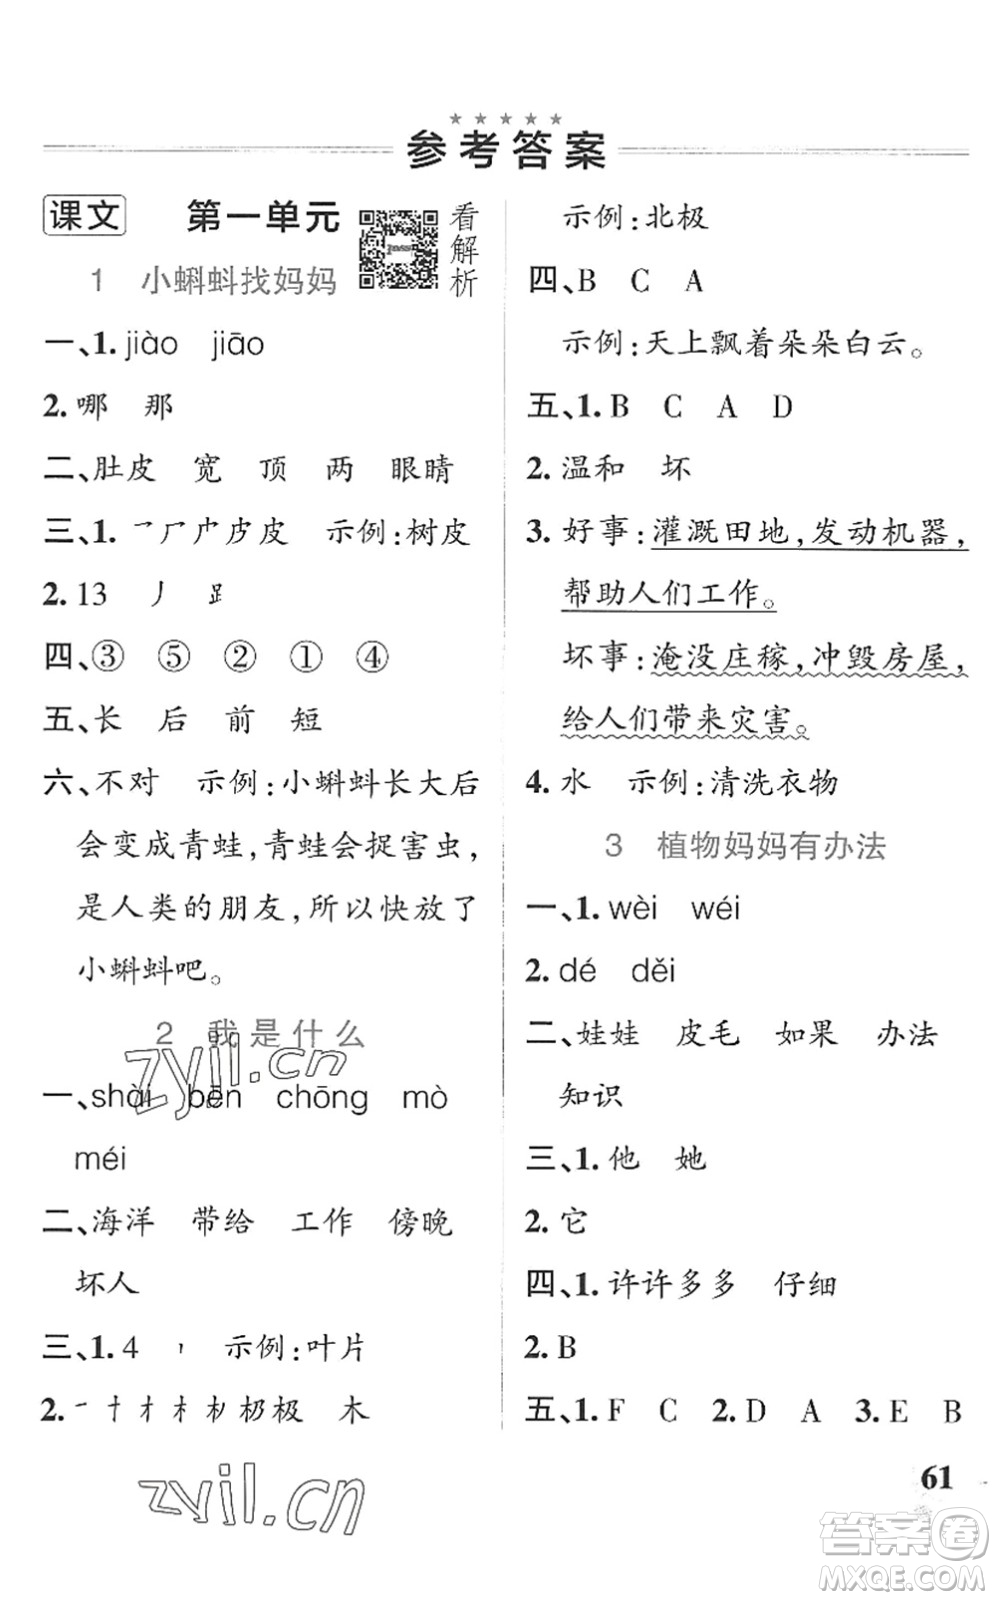 ★★★★★
参考答案
课文 第一单元
看解析
1 小蝌蚪找妈妈
一、1. jiào jiāo
2. 哪 那
二、肚皮 宽 顶 两 眼睛
三、1. 示例:树皮
2. 13 丿 𧾷
四、③ ⑤ ② ① ④
五、长 后 前 短
六、不对 示例:小蝌蚪长大后
会变成青蛙,青蛙会捉害虫,
是人类的朋友,所以快放了
小蝌蚪吧。
2 我是什么
一、shài bēn chōng mò
méi
二、海洋 带给 工作 傍晚
坏人
三、1. 4 示例:叶片
2. 一 十 才 木 极 木
示例:北极
四、B C A
示例:天上飘着朵朵白云。
五、1. B C A D
2. 温和 坏
3. 好事:灌溉田地,发动机器,
帮助人们工作。
坏事:淹没庄稼,冲毁房屋,
给人们带来灾害。
4. 水 示例:清洗衣物
3 植物妈妈有办法
一、1. wèi wéi
2. dé děi
二、娃娃 皮毛 如果 办法
知识
三、1. 他 她
2. 它
四、1. 许许多多 仔细
2. B
五、1. F C 2. D A 3. E B
61
zyjl.cn
zyjl.cn
答案卷
MXQE.COM